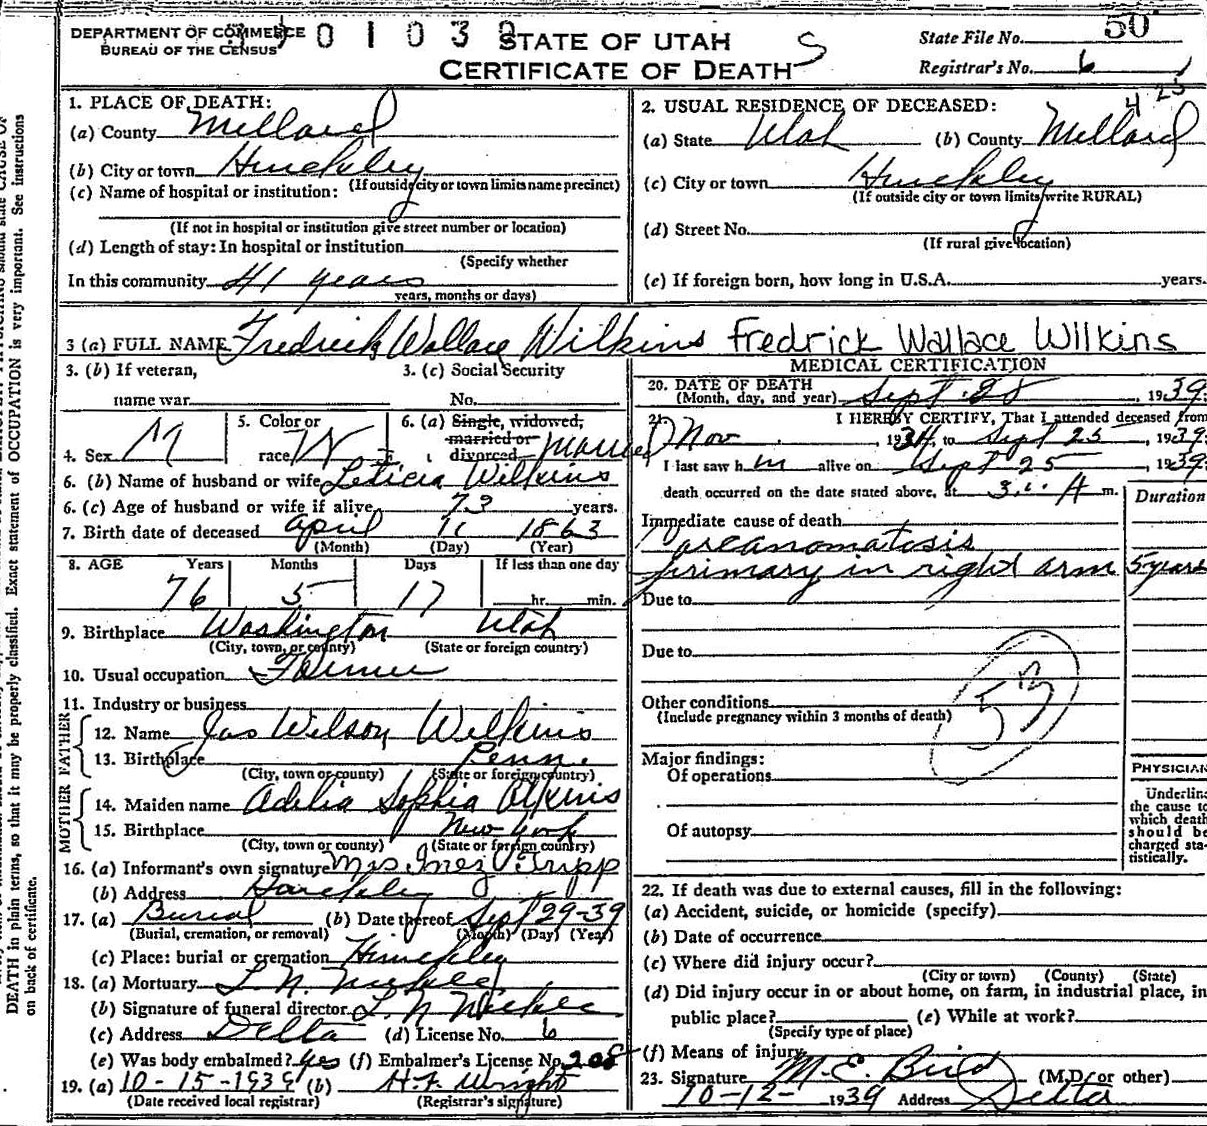 DEPARTMENT OF COMMERCE
BUREAU OF THE CENSUS
0 1 0 3 9
STATE OF UTAH
CERTIFICATE OF DEATH
S
State File No. 50
Registrar's No. 6
4 23
1. PLACE OF DEATH:
(a) County Millard
(b) City or town Hinckley
(If outside city or town limits name precinct)
(c) Name of hospital or institution:
(If not in hospital or institution give street number or location)
(d) Length of stay: In hospital or institution
(Specify whether
In this community 41 years
years, months or days)
2. USUAL RESIDENCE OF DECEASED:
(a) State Utah (b) County Millard
(c) City or town Hinckley
(If outside city or town limits write RURAL)
(d) Street No.
(If rural give location)
(e) If foreign born, how long in U.S.A. years.
3 (a) FULL NAME Fredrick Wallace Wilkins Fredrick Wallace Wilkins
3. (b) If veteran, 3. (c) Social Security
name war No.
4. Sex M
5. Color or
race W
6. (a) Single, widowed,
married or
divorced Married
6. (b) Name of husband or wife Leticia Wilkins
6. (c) Age of husband or wife if alive 73 years.
7. Birth date of deceased April 11 1863
(Month) (Day) (Year)
8. AGE Years Months Days If less than one day
76 5 17 hr. min.
9. Birthplace Washington Utah
(City, town, or county) (State or foreign country)
10. Usual occupation Farmer
11. Industry or business
FATHER
12. Name Jas Wilson Wilkins
13. Birthplace Penn.
(City, town or county) (State or foreign country)
MOTHER
14. Maiden name Adelia Sophia
15. Birthplace New York
(City, town or county) (State or foreign country)
16. (a) Informant's own signature Mrs Inez Tripp
(b) Address Hinckley
17. (a) Burial (b) Date thereof Sept 29-39
(Burial, cremation, or removal) (Month) (Day) (Year)
(c) Place: burial or cremation Hinckley
18. (a) Mortuary L. N.
(b) Signature of funeral director L. N.
(c) Address Delta (d) License No. 6
(e) Was body embalmed? yes (f) Embalmer's License No. 208
19. (a) 10-15-1939 (b) H.F. Wright
(Date received local registrar) (Registrar's signature)
MEDICAL CERTIFICATION
20. DATE OF DEATH
(Month, day, and year) Sept 28, 1939:
21. I HEREBY CERTIFY, That I attended deceased from
Nov , 1934, to Sept 25 , 1939:
I last saw him alive on Sept 25 , 1939:
death occurred on the date stated above, at 3 A m.
Duration
Immediate cause of death
Carcanomatosis
primary in right arm 5 years
Due to
Due to
53
Other conditions
(Include pregnancy within 3 months of death)
Major findings:
Of operations
Of autopsy
PHYSICIAN
Underline
the cause to
which death
should be
charged sta-
tistically.
22. If death was due to external causes, fill in the following:
(a) Accident, suicide, or homicide (specify)
(b) Date of occurrence
(c) Where did injury occur?
(City or town) (County) (State)
(d) Did injury occur in or about home, on farm, in industrial place, in
public place? (e) While at work?
(Specify type of place)
(f) Means of injury
23. Signature M. E. Bird (M.D. or other)
10-12- 1939 Address Delta
DEATH in plain terms, so that it may be properly classified. Exact statement of OCCUPATION is very important. See instructions
on back of certificate.